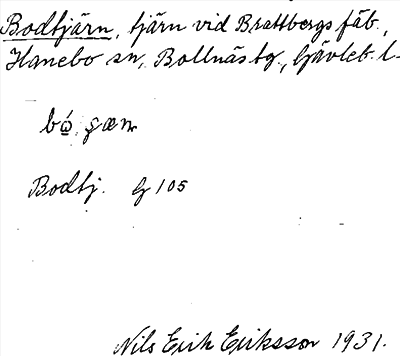 Bodtjärn, tjärn vid Brattbergs fäb.,
Hanebo sn, Bollnäs tg., Gävleb. l.
Bodtj. G 105
Nils Erik Eriksson 1931.